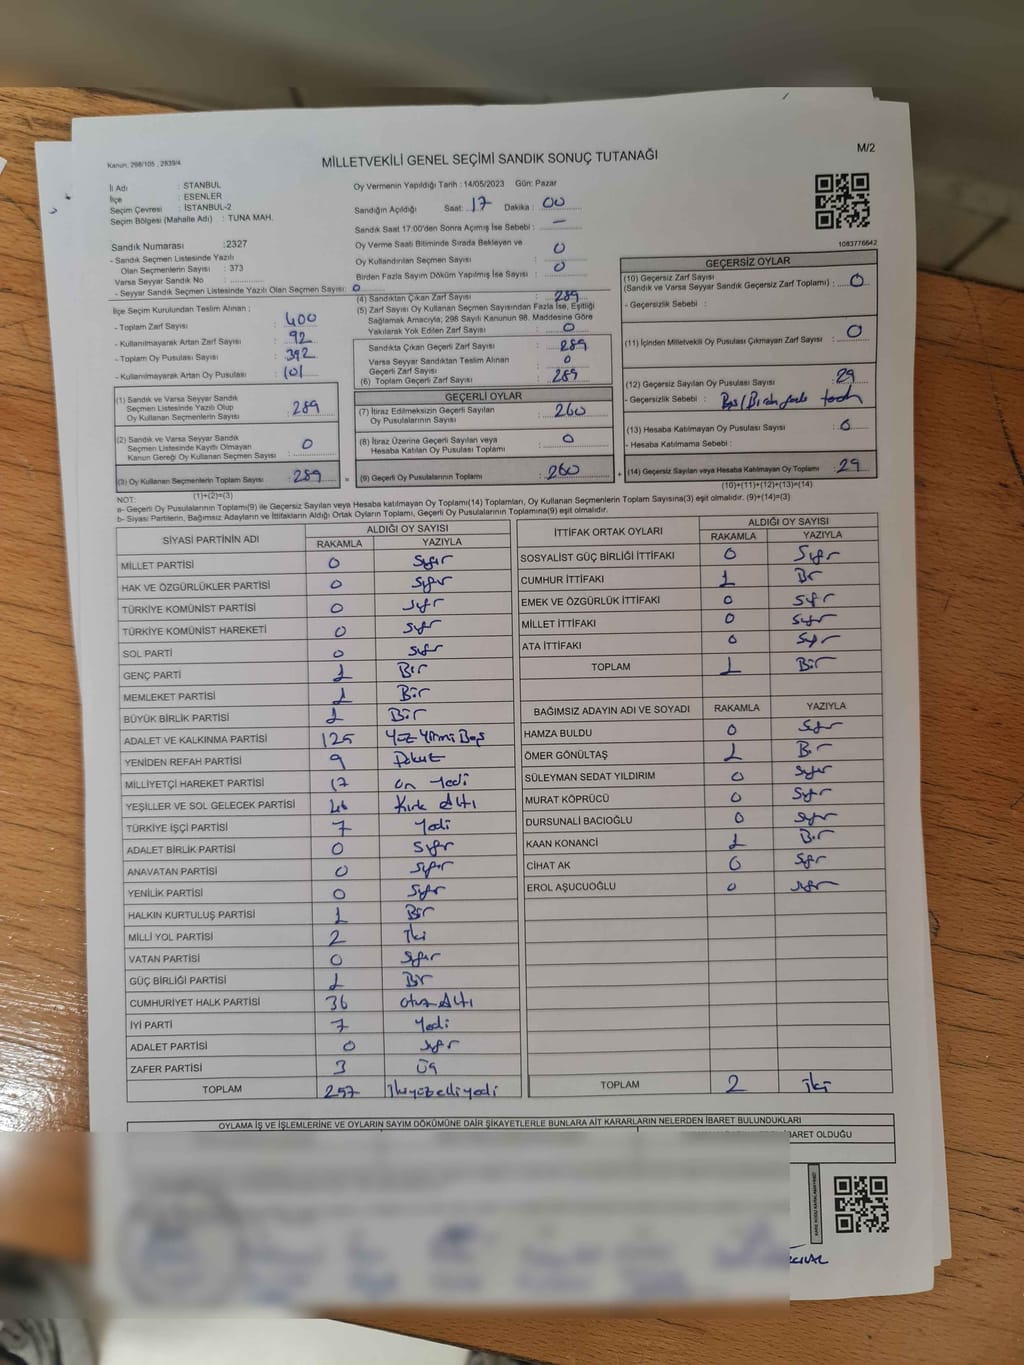 Kanun, 298/105 , 2839/4
MİLLETVEKİLİ GENEL SEÇİMİ SANDIK SONUÇ TUTANAĞI
M/2
İl Adı : STANBUL
İlçe : ESENLER
Seçim Çevresi : İSTANBUL-2
Seçim Bölgesi (Mahalle Adı) : TUNA MAH.
Sandık Numarası :2327
- Sandık Seçmen Listesinde Yazılı
Olan Seçmenlerin Sayısı : 373
Varsa Seyyar Sandık No :
- Seyyar Sandık Seçmen Listesinde Yazılı Olan Seçmen Sayısı: 0
İlçe Seçim Kurulundan Teslim Alınan ;
- Toplam Zarf Sayısı : 400
- Kullanılmayarak Artan Zarf Sayısı : 92
- Toplam Oy Pusulası Sayısı : 392
- Kullanılmayarak Artan Oy Pusulası : 101
(1) Sandık ve Varsa Seyyar Sandık
Seçmen Listesinde Yazılı Olup
Oy Kullanan Seçmenlerin Sayısı : 289
(2) Sandık ve Varsa Seyyar Sandık
Seçmen Listesinde Kayıtlı Olmayan
Kanun Gereği Oy Kullanan Seçmen Sayısı : 0
(3) Oy Kullanan Seçmenlerin Toplam Sayısı : 289
(1)+(2)=(3)
Oy Vermenin Yapıldığı Tarih : 14/05/2023 Gün: Pazar
Sandığın Açıldığı Saat: 17 Dakika : 00
Sandık Saat 17:00'den Sonra Açımış İse Sebebi : —
Oy Verme Saati Bitiminde Sırada Bekleyen ve
Oy Kullandırılan Seçmen Sayısı : 0
Birden Fazla Sayım Döküm Yapılmış İse Sayısı : 0
(4) Sandıktan Çıkan Zarf Sayısı : 289
(5) Zarf Sayısı Oy Kullanan Seçmen Sayısından Fazla İse, Eşitliği
Sağlamak Amacıyla; 298 Sayılı Kanunun 98. Maddesine Göre
Yakılarak Yok Edilen Zarf Sayısı : 0
Sandıkta Çıkan Geçerli Zarf Sayısı : 289
Varsa Seyyar Sandıktan Teslim Alınan
Geçerli Zarf Sayısı : 0
(6) Toplam Geçerli Zarf Sayısı : 289
GEÇERLİ OYLAR
(7) İtiraz Edilmeksizin Geçerli Sayılan
Oy Pusulalarının Sayısı : 260
(8) İtiraz Üzerine Geçerli Sayılan veya
Hesaba Katılan Oy Pusulası Toplamı : 0
= (9) Geçerli Oy Pusulalarının Toplamı : 260 +
1083776642
GEÇERSİZ OYLAR
(10) Geçersiz Zarf Sayısı
(Sandık ve Varsa Seyyar Sandık Geçersiz Zarf Toplamı) : 0
- Geçersizlik Sebebi :
(11) İçinden Milletvekili Oy Pusulası Çıkmayan Zarf Sayısı : 0
(12) Geçersiz Sayılan Oy Pusulası Sayısı : 29
- Geçersizlik Sebebi :
(13) Hesaba Katılmayan Oy Pusulası Sayısı : 0
- Hesaba Katılmama Sebebi :
(14) Geçersiz Sayılan veya Hesaba Katılmayan Oy Toplamı : 29
(10)+(11)+(12)+(13)=(14)
NOT:
a- Geçerli Oy Pusulalarının Toplamı(9) ile Geçersiz Sayılan veya Hesaba katılmayan Oy Toplamı(14) Toplamları, Oy Kullanan Seçmenlerin Toplam Sayısına(3) eşit olmalıdır. (9)+(14)=(3)
b- Siyasi Partilerin, Bağımsız Adayların ve İttifakların Aldığı Ortak Oyların Toplamı, Geçerli Oy Pusulalarının Toplamına(9) eşit olmalıdır.
SİYASİ PARTİNİN ADI ALDIĞI OY SAYISI
RAKAMLA YAZIYLA
MİLLET PARTİSİ 0 Sıfır
HAK VE ÖZGÜRLÜKLER PARTİSİ 0 Sıfır
TÜRKİYE KOMÜNİST PARTİSİ 0 Sıfır
TÜRKİYE KOMÜNİST HAREKETİ 0 Sıfır
SOL PARTİ 0 Sıfır
GENÇ PARTİ 1 Bir
MEMLEKET PARTİSİ 1 Bir
BÜYÜK BİRLİK PARTİSİ 1 Bir
ADALET VE KALKINMA PARTİSİ 125 Yüz Yirmi Beş
YENİDEN REFAH PARTİSİ 9 Dokuz
MİLLİYETÇİ HAREKET PARTİSİ 17 On Yedi
YEŞİLLER VE SOL GELECEK PARTİSİ 46 Kırk Altı
TÜRKİYE İŞÇİ PARTİSİ 7 Yedi
ADALET BİRLİK PARTİSİ 0 Sıfır
ANAVATAN PARTİSİ 0 Sıfır
YENİLİK PARTİSİ 0 Sıfır
HALKIN KURTULUŞ PARTİSİ 1 Bir
MİLLİ YOL PARTİSİ 2 İki
VATAN PARTİSİ 0 Sıfır
GÜÇ BİRLİĞİ PARTİSİ 1 Bir
CUMHURİYET HALK PARTİSİ 36 Otuz Altı
İYİ PARTİ 7 Yedi
ADALET PARTİSİ 0 Sıfır
ZAFER PARTİSİ 3 Üç
TOPLAM 257 İkiyüzelliyedi
İTTİFAK ORTAK OYLARI ALDIĞI OY SAYISI
RAKAMLA YAZIYLA
SOSYALİST GÜÇ BİRLİĞİ İTTİFAKI 0 Sıfır
CUMHUR İTTİFAKI 1 Bir
EMEK VE ÖZGÜRLÜK İTTİFAKI 0 Sıfır
MİLLET İTTİFAKI 0 Sıfır
ATA İTTİFAKI 0 Sıfır
TOPLAM 1 Bir
BAĞIMSIZ ADAYIN ADI VE SOYADI RAKAMLA YAZIYLA
HAMZA BULDU 0 Sıfır
ÖMER GÖNÜLTAŞ 1 Bir
SÜLEYMAN SEDAT YILDIRIM 0 Sıfır
MURAT KÖPRÜCÜ 0 Sıfır
DURSUNALİ BACIOĞLU 0 Sıfır
KAAN KONANCİ 1 Bir
CİHAT AK 0 Sıfır
EROL AŞUCUOĞLU 0 Sıfır
TOPLAM 2 İki
OYLAMA İŞ VE İŞLEMLERİNE VE OYLARIN SAYIM DÖKÜMÜNE DAİR ŞİKAYETLERLE BUNLARA AİT KARARLARIN NELERDEN İBARET BULUNDUKLARI
İBARET OLDUĞU